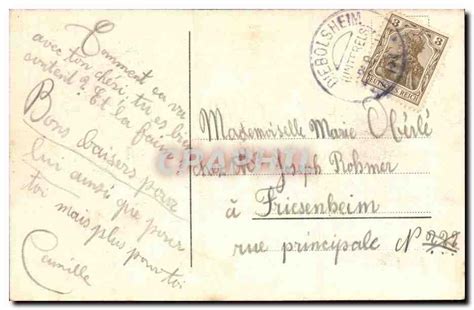 Comment ca va
avec ton chéri, tu es bien
contente? Et la
Bons baisers pour
lui ainsi que pour
toi mais plus pour toi
Camille
DIEBOLSHEIM
(UNTERELS
3
DEUTSCHES REICH
Mademoiselle Marie Obérlé
chez M. Joseph Rohmer
à Friesenheim
rue principale N° 222
CPAPHIL